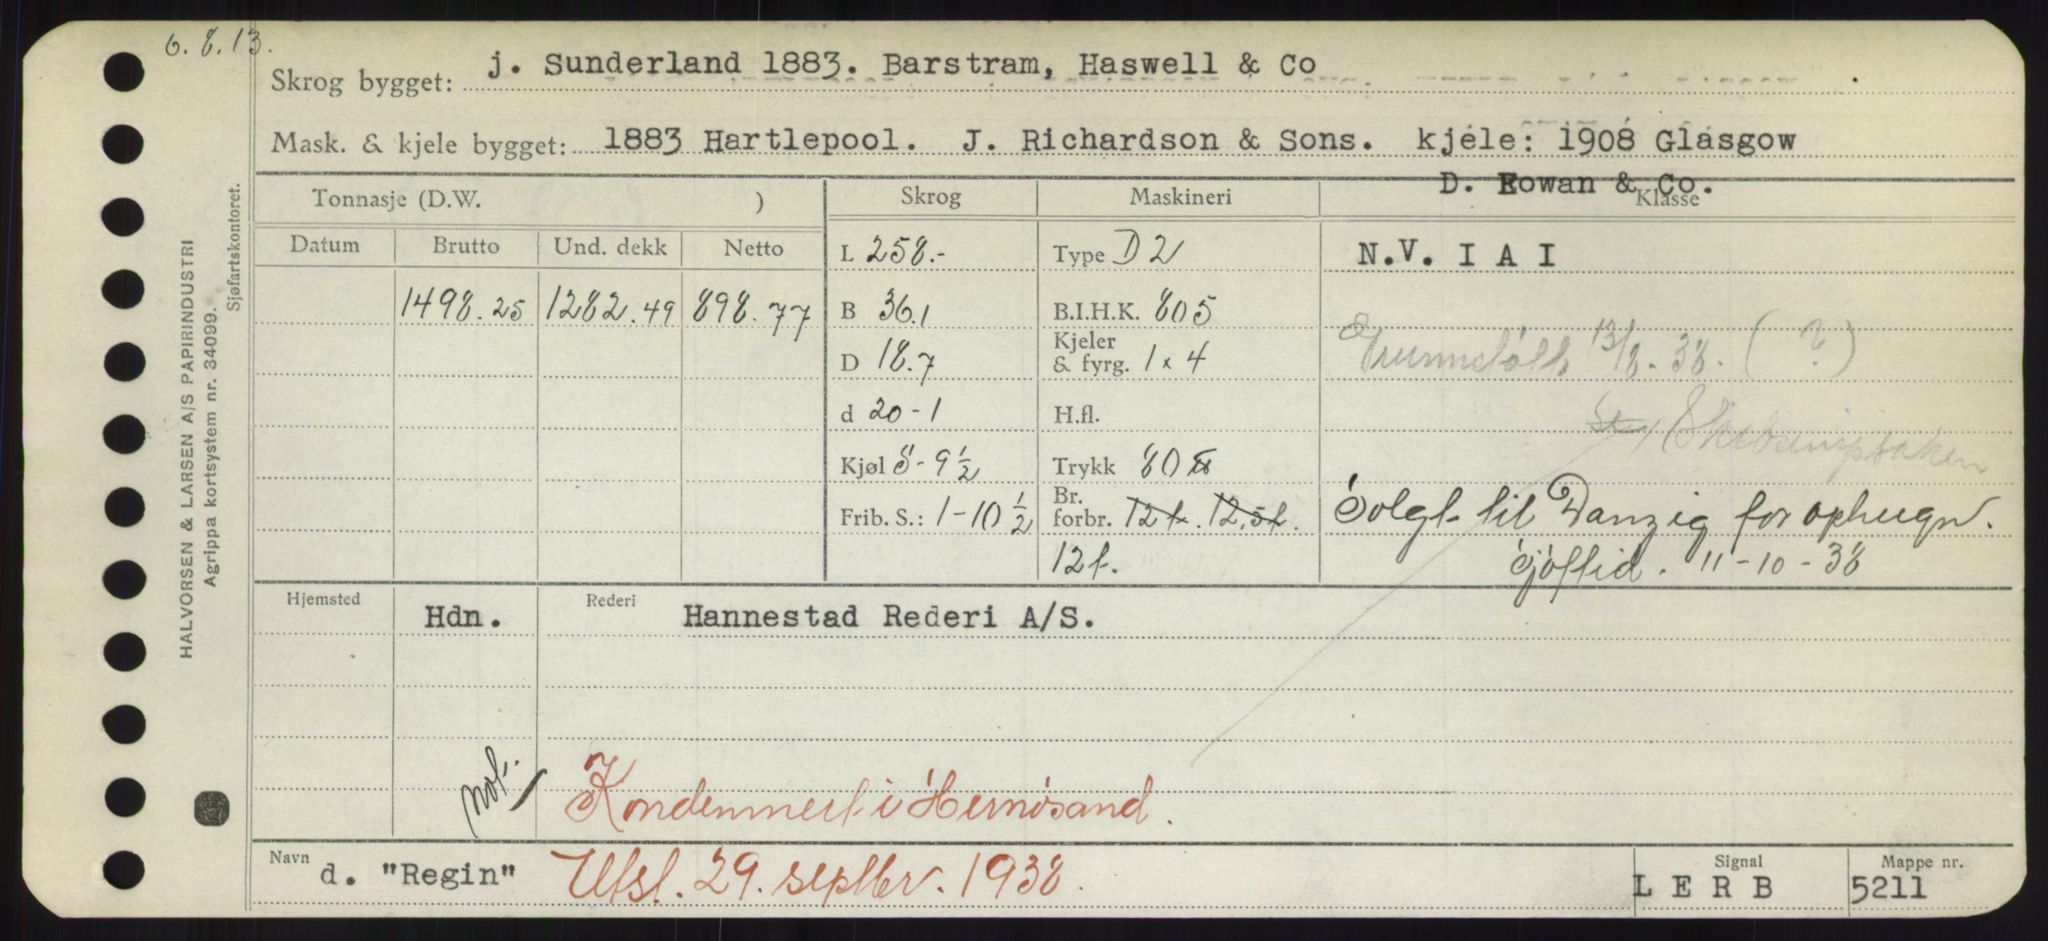 6.8.13.
Skrog bygget: j. Sunderland 1883. Barstram, Haswell & Co
Mask. & kjele bygget: 1883 Hartlepool. J. Richardson & Sons. kjele: 1908 Glasgow
D. Rowan & Co.
Tonnasje (D.W. ) Skrog Maskineri Klasse
Datum Brutto Und. dekk Netto L 258.- Type D 2 N.V. I A I
1498.25 1282.49 898.77 B 36.1 B.I.H.K. 805
D 18.7 Kjeler & fyrg. 1 x 4 13/8-38. ( ? )
d 20-1 H.fl.
Kjøl 8-9 1/2 Trykk 80
Frib. S.: 1-10 1/2 Br. forbr. 12 t. 12,5 t. Solgt til Danzig for ophugn.
12 t. Sjøftid. 11-10-38
Hjemsted Hdn. Rederi Hannestad Rederi A/S.
not. Kondemnert i Hernösand.
Navn d. "Regin" Utsl. 29. septbr. 1938. Signal L E R B Mappe nr. 5211
HALVORSEN & LARSEN A/S PAPIRINDUSTRI
Agrippa kortsystem nr. 34099.
Sjøfartskontoret.